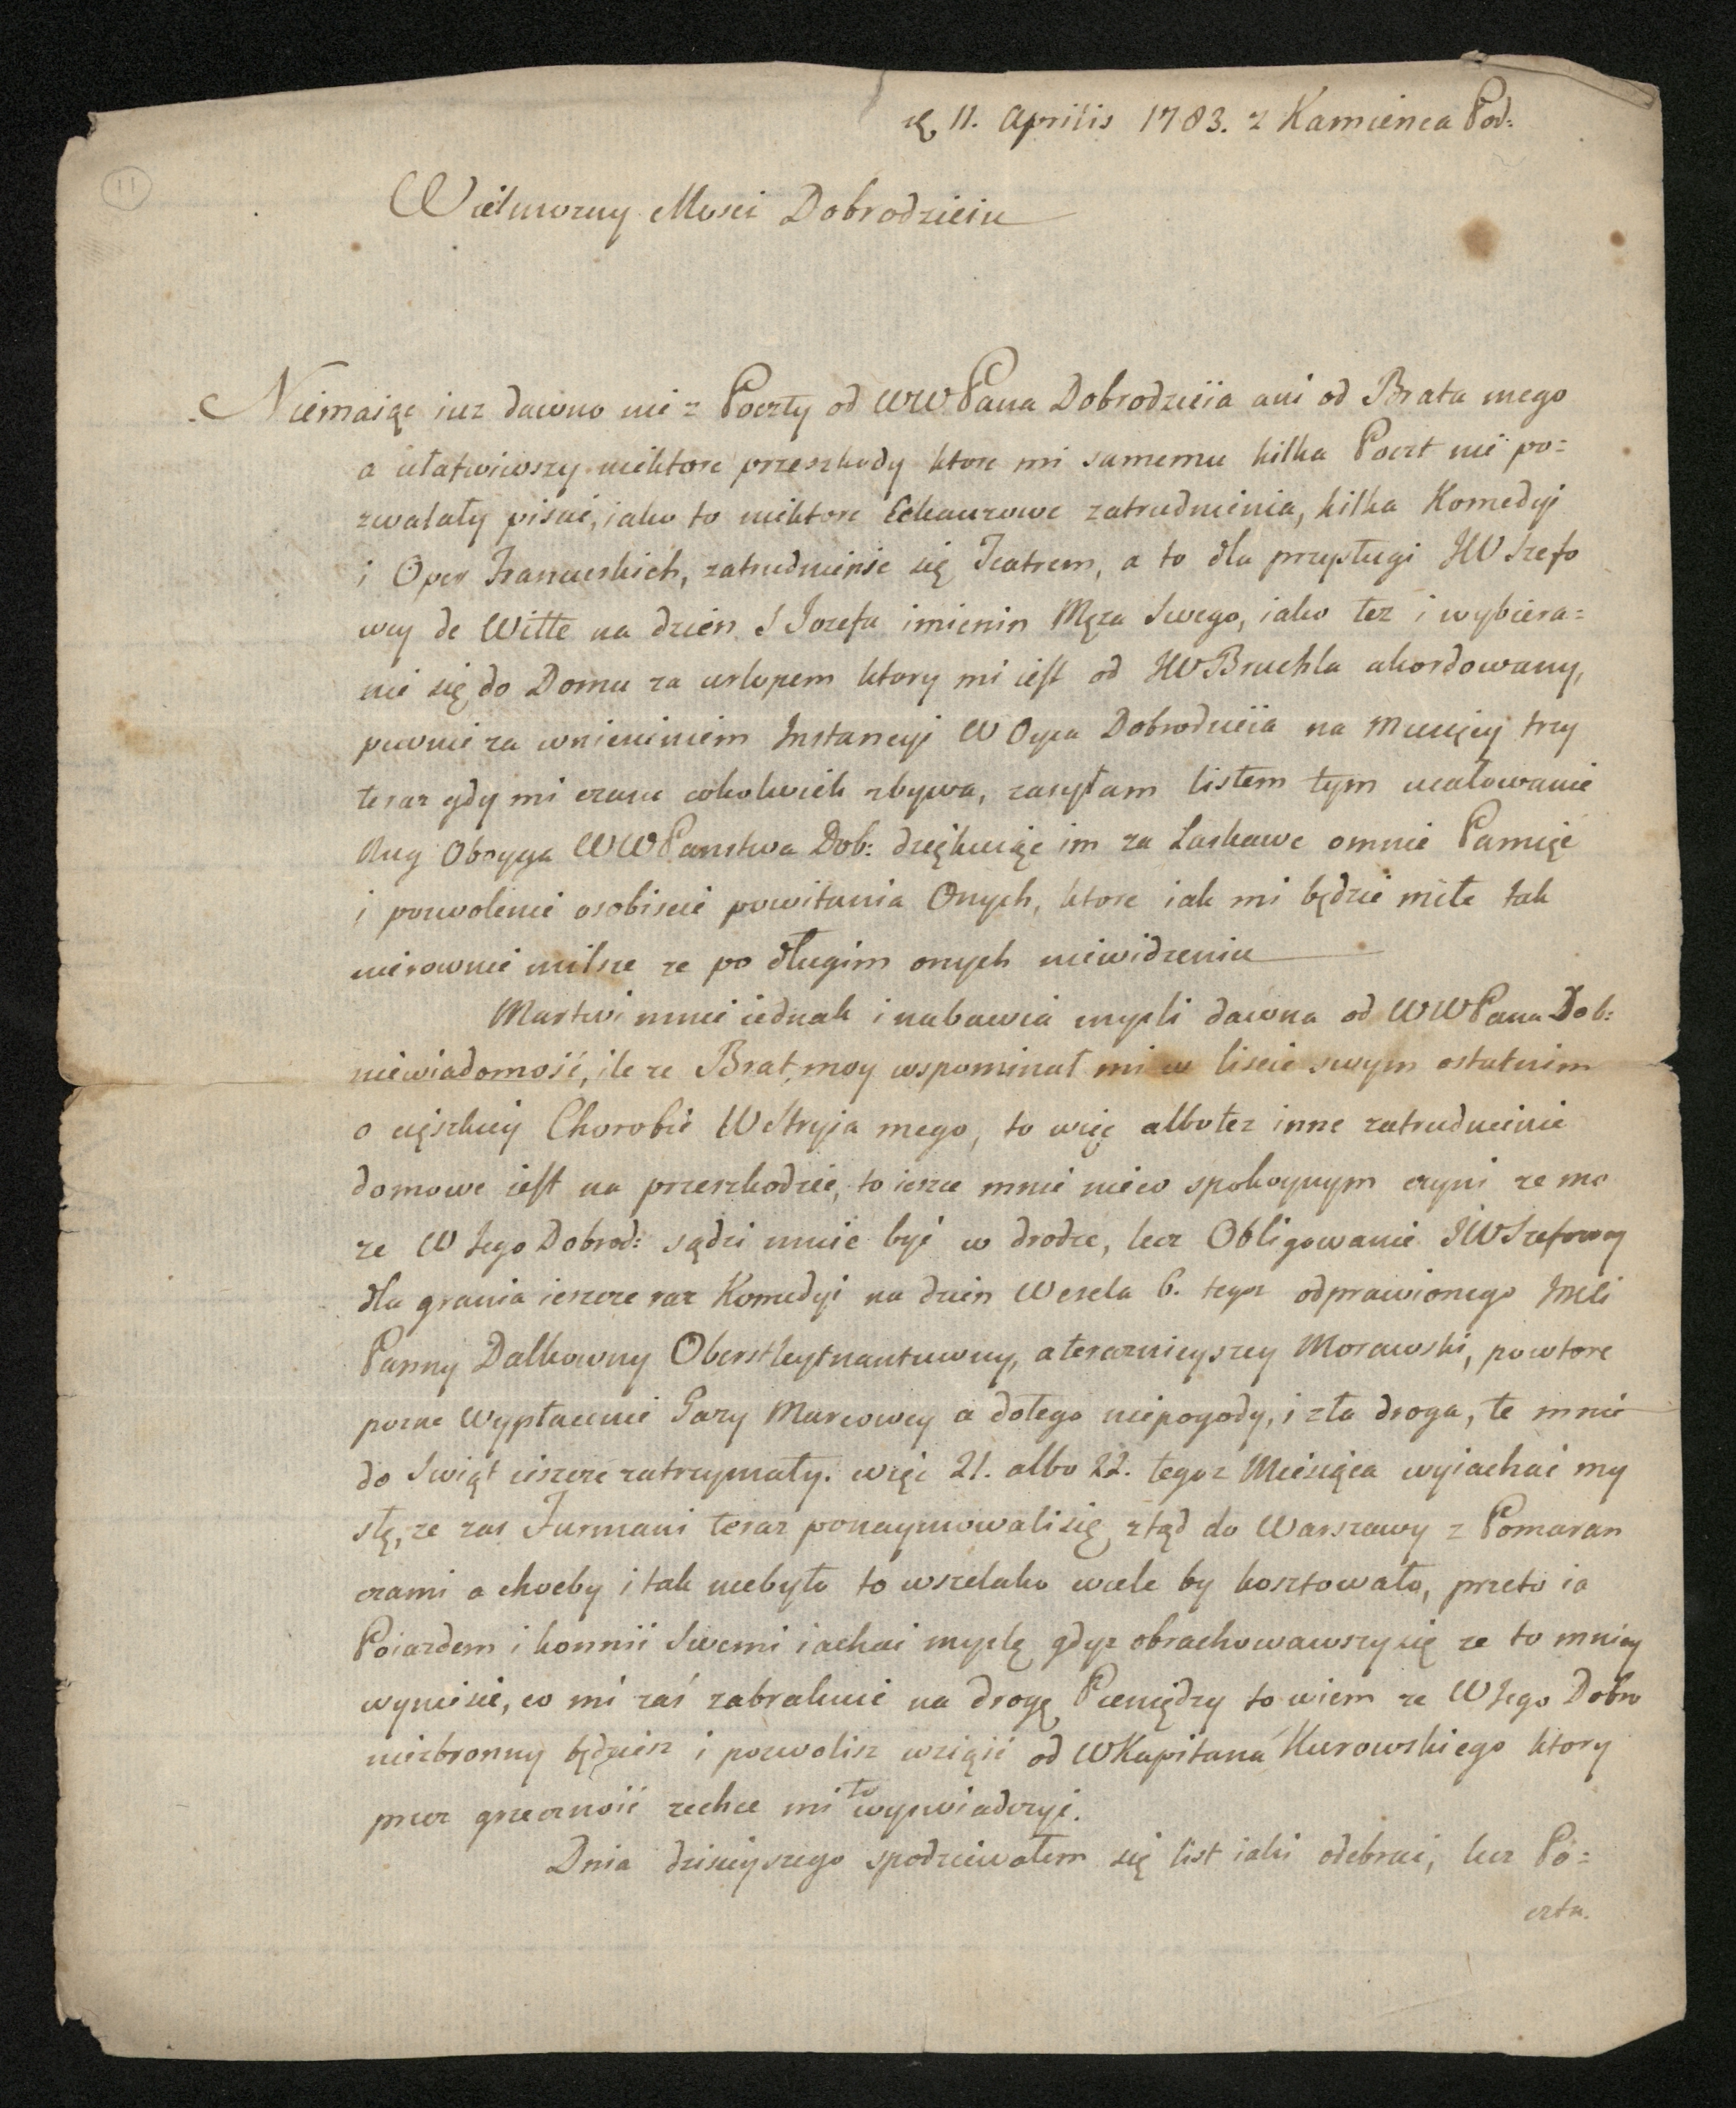 11. Aprilis 1783. z Kamienca Pod:
11
Wielmozny Mosci Dobrodzieiu
Niemaiąc iuz dawno nic z Poczty od WWPana Dobrodzieia ani od Brata mego
a ułatwiwszy niektore przeszkody ktore mi samemu kilka Poczt nie po=
zwalały pisać, iako to niektore zatrudnienia, kilka Komedyi
i Oper Francuskich, zatrudnienie się Teatrem, a to dla przysługi JWSzefo
wey de Witte na dzien S Jozefa imienin Męza Swego, iako tez i wybiera=
nie się do Domu za urlopem ktory mi iest od JWBruchla akordowany,
pewnie za wniesieniem Instancyi W Oyca Dobrodzieia na Miesięcy trzy
teraz gdy mi czasu cokolwiek zbywa, zasyłam listem tym ucałowanie
Nug Oboyga WWPanstwa Dob: dziękuiąc im za Łaskawe omnie Pamięć
i pozwolenie osobiscie powitania Onych, ktore iak mi będzie miłe tak
nierownie milsze ze po długim onych niewidzeniu
Martwi mnie iednak i nabawia mysli dawna od WWPana Dob:
niewiadomość, ile ze Brat moy wspominał mi w liscie swym ostatnim
o cięszkiey Chorobie WStryia mego, to więc albotez inne zatrudnienie
domowe iest na przeszkodzie, to iesze mnie nieco spokoynym czyni ze mo
ze W Jego Dobrod: sądzi mnie być w drodze, lecz Obligowanie JWSzefowey
dla grania ieszcze raz Komedyi na dzien Wesela 6. tegoz odprawionego
Panny Dalkowny Oberstleytnantuwny, a teraznieyszey Morawski, powtore
pozne Wypłacenie Gazy Marcowey a dotego niepogody, i zła droga, te mnie
do Swiąt ieszcze zatrzymały. więc 21. albo 22. tegoz Miesiąca wyiachać my
slę, ze zas Furmani teraz ponaymowali się ztąd do Warszawy z Pomaran
czami a choeby i tak niebyło to wszelako wiele by kosztowało, przeto ia
Poiazdem i konmii Swemi iachać myslę gdyz obrachowawszy się ze to mniey
wyniesie, co mi zaś zabraknie na drogę Pieniędzy to wiem ze WJego Dobro
niezbronny będziesz i pozwolisz wziąść od WKapitana Kurowskiego ktory
przez grzeczność zechce mi to wyswiadczyć.
Dnia dzisieyszego spodziewałem się list iaki odebrać, lecz Po=
czta.